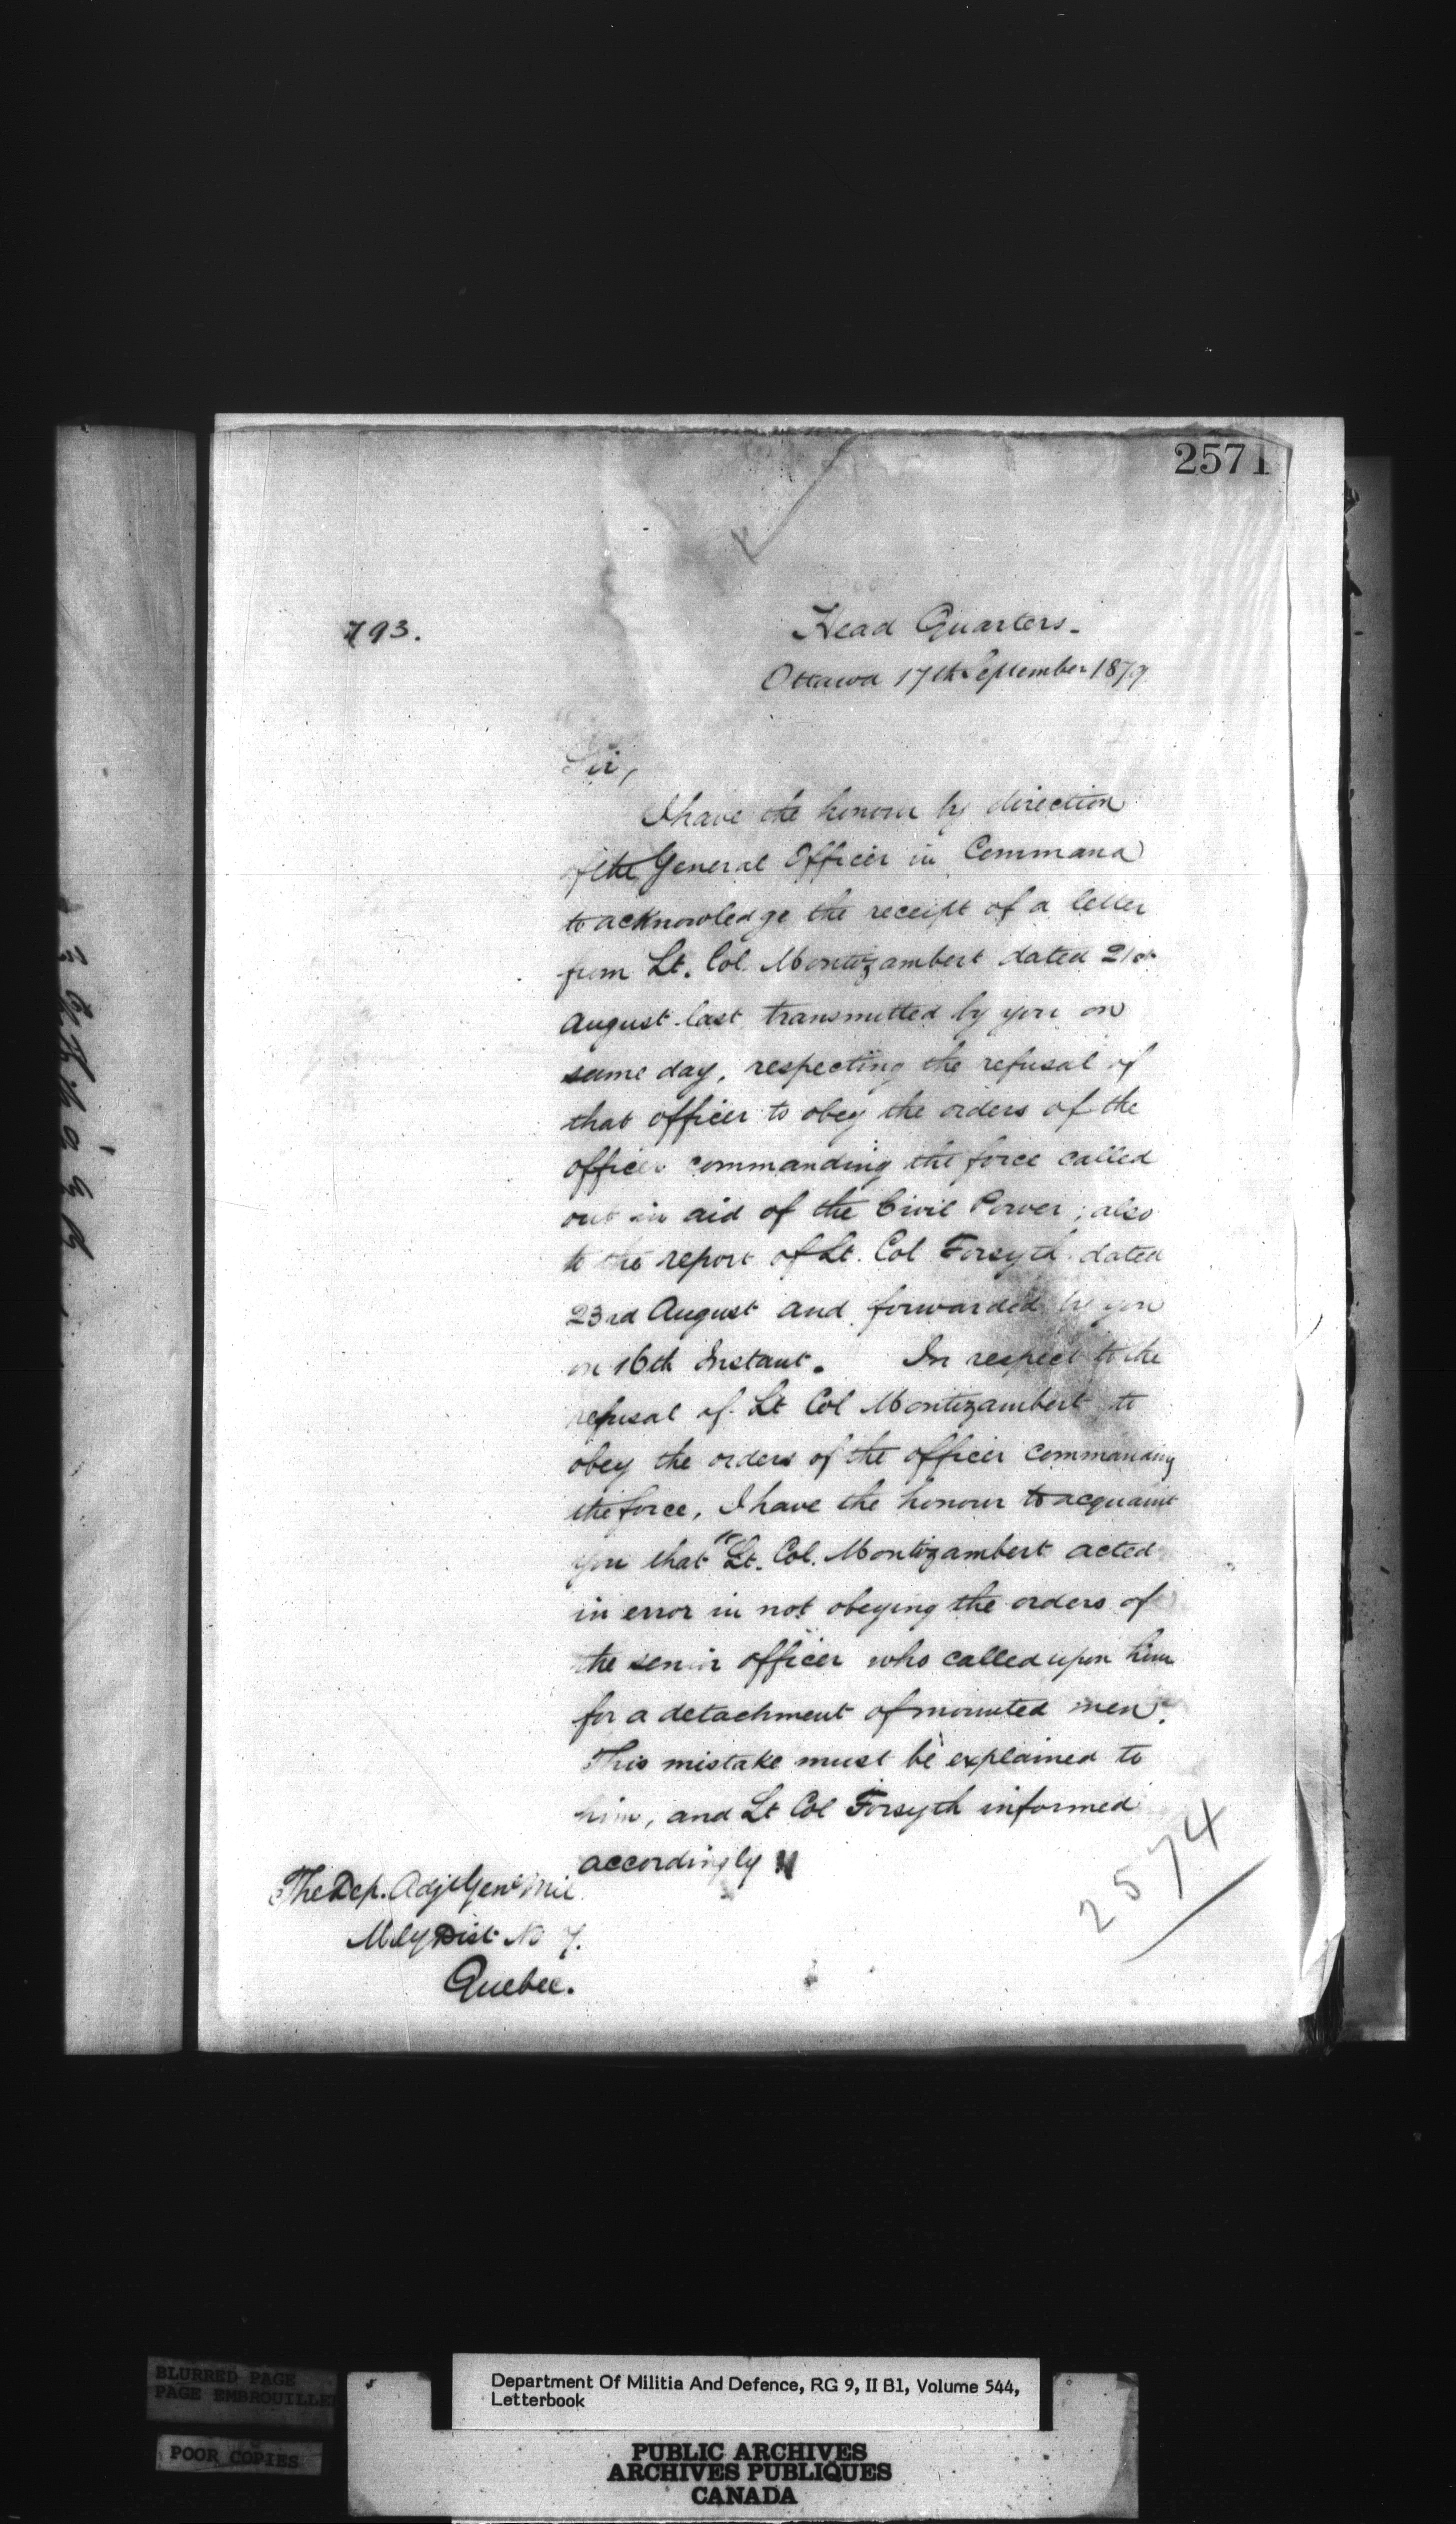 2571
793.
Head Quarters.
Ottawa 17th September 1879
Sir,
I have the honour by direction
of the General Officer in Command
to acknowledge the receipt of a letter
from Lt. Col. Montizambert dated 21st
August last transmitted by you on
same day, respecting the refusal of
that officer to obey the orders of the
officer commanding the force called
out in aid of the Civil Power; also
to the report of Lt. Col Forsyth dated
23rd August and forwarded by you
on 16th Instant. In respect to the
refusal of Lt Col Montizambert to
obey the orders of the officer commanding
the force, I have the honour to acquaint
you that "Lt. Col. Montizambert acted
in error in not obeying the orders of
the senior officer who called upon him
for a detachment of mounted men".
This mistake must be explained to
him, and Lt Col Forsyth informed
accordingly
The Dep. Adjt Genl Mil
Mily Dist No 7.
Quebec.
2574
BLURRED PAGE
PAGE EMBROUILLEE
POOR COPIES
Department Of Militia And Defence, RG 9, II B1, Volume 544,
Letterbook
PUBLIC ARCHIVES
ARCHIVES PUBLIQUES
CANADA